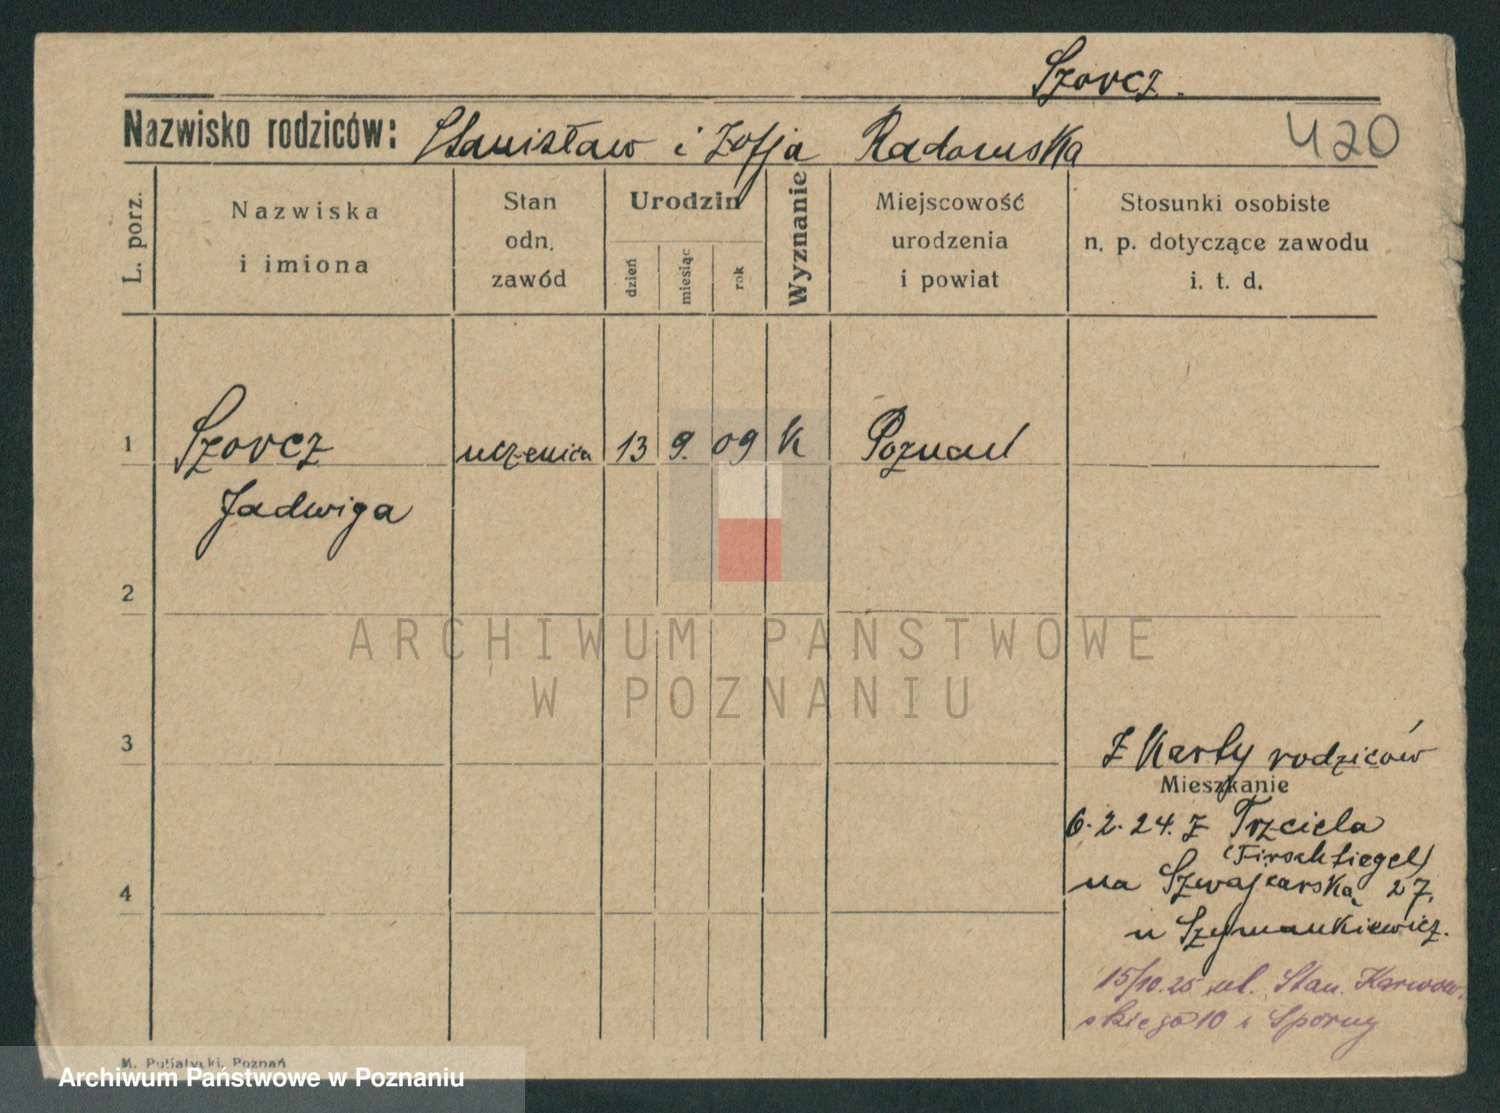 Szorcz.
Nazwisko rodziców: Stanisław i Zofja Radomska 420
L. porz.
Nazwiska
i imiona
Stan
odn.
zawód
Urodzin
dzień
miesiąc
rok
Wyznanie
Miejscowość
urodzenia
i powiat
Stosunki osobiste
n. p. dotyczące zawodu
i. t. d.
1 Szorcz uczenica 13 9. 09 K Poznań
Jadwiga
2
ARCHIWUM PAŃSTWOWE
W POZNANIU
3
Z Karty rodziców
Mieszkanie
6.2.24. z Trzciela
(Tirschtiegel)
4
na Szwajcarską 27.
u Szymankiewicz.
15/10.25 ul. Stan. Karwow-
skiego 10 u Sporny
M. Putiatycki, Poznań
Archiwum Państwowe w Poznaniu